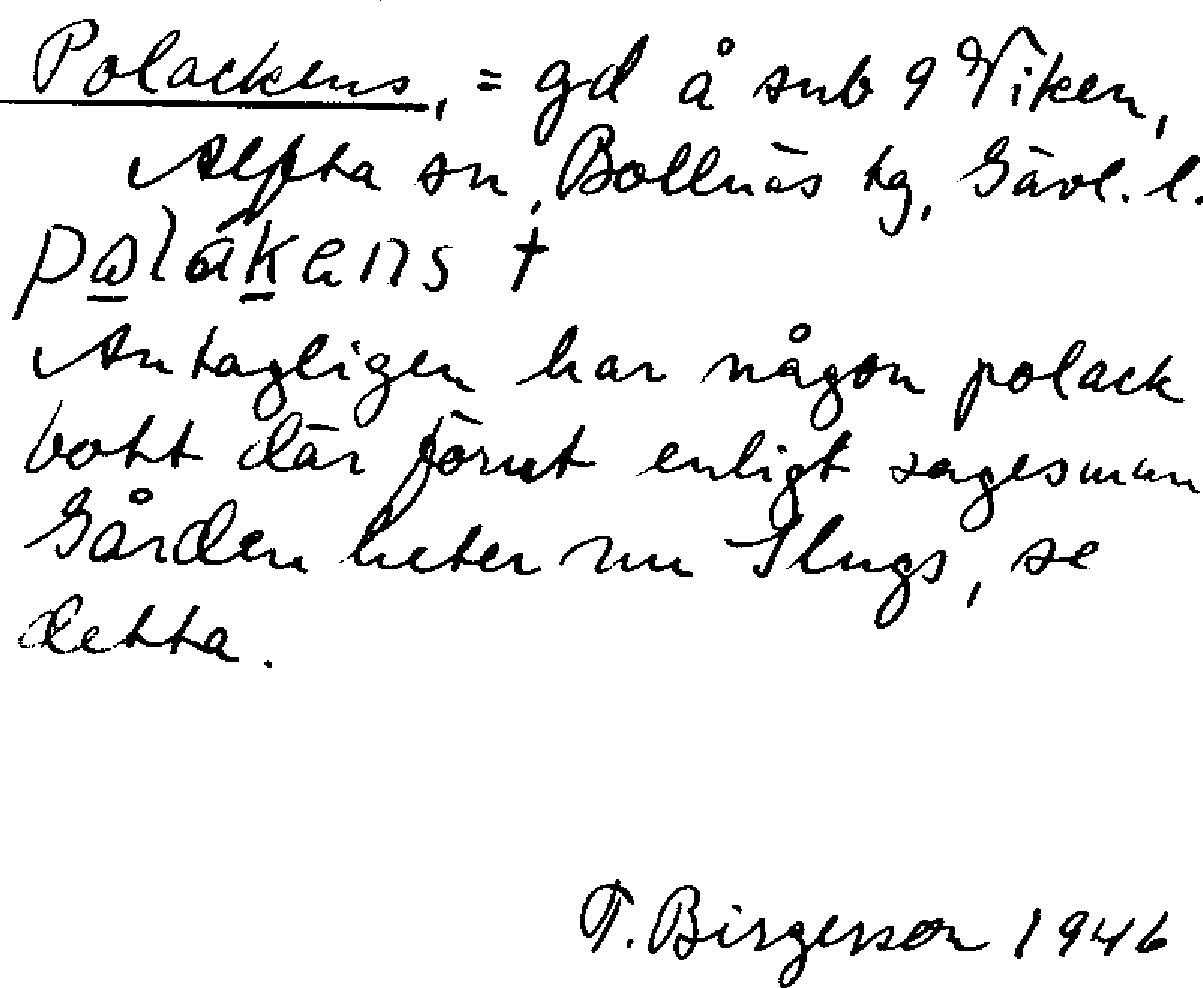 Polackens, = gd å sub 9 Viken,
Alfta sn, Bollnäs tg, Gävl. l.
palákens †
Antagligen har någon polack
bott där förut enligt sagesman
Gården heter nu Slugs, se
detta.
T. Birgersson 1946